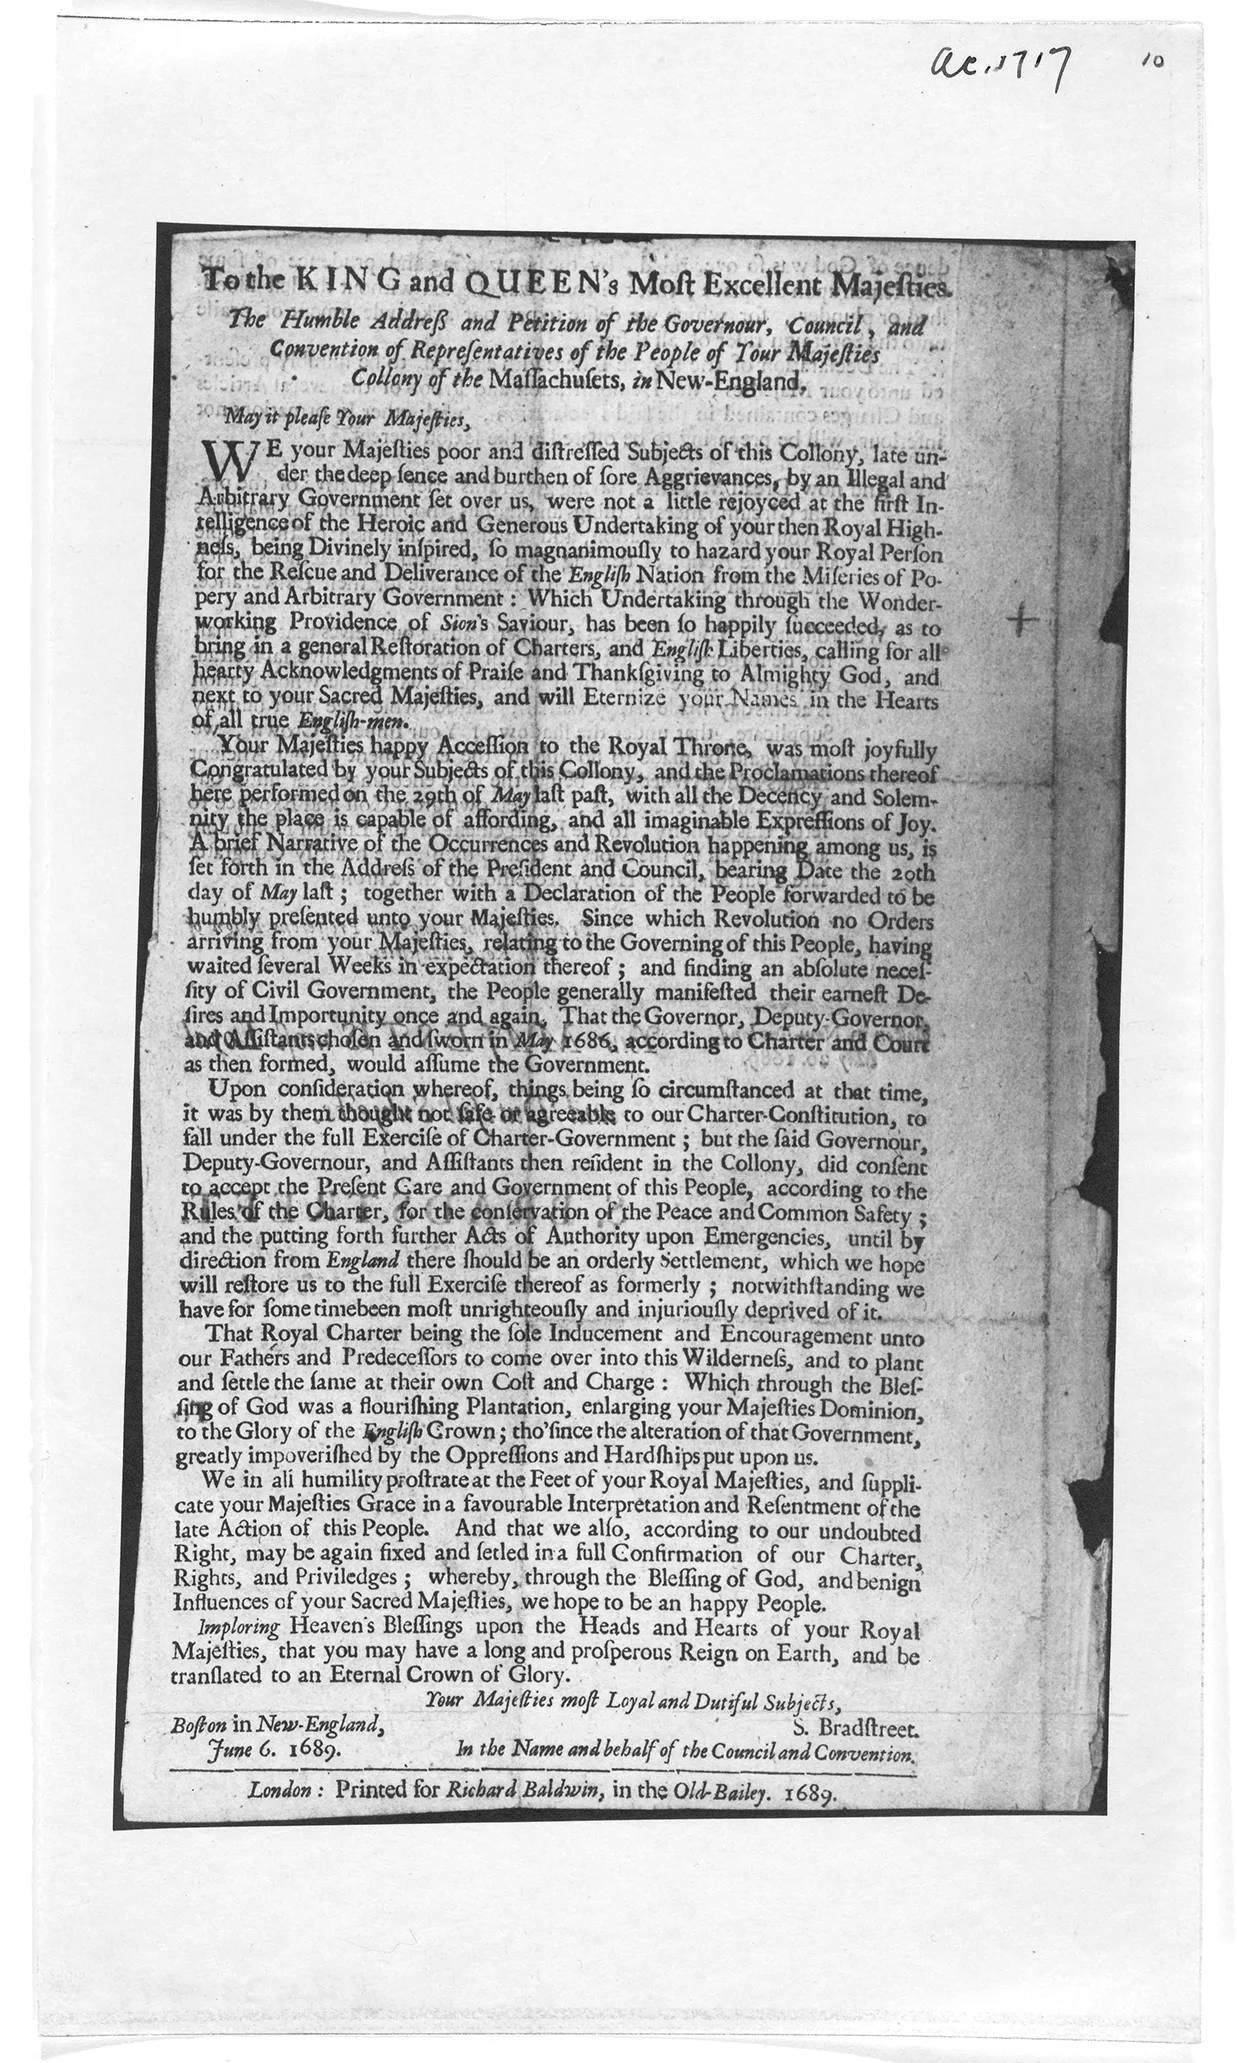 ac. 1717
10
To the KING and QUEEN's Moſt Excellent Majeſties.
The Humble Addreſs and Petition of the Governour, Council, and
Convention of Repreſentatives of the People of Your Majeſties
Collony of the Maſſachuſets, in New-England.
May it pleaſe Your Majeſties,
WE your Majeſties poor and diſtreſſed Subjects of this Collony, late un-
der the deep ſence and burthen of ſore Aggrievances, by an Illegal and
Arbitrary Government ſet over us, were not a little rejoyced at the firſt In-
telligence of the Heroic and Generous Undertaking of your then Royal High-
neſs, being Divinely inſpired, ſo magnanimouſly to hazard your Royal Perſon
for the Reſcue and Deliverance of the Engliſh Nation from the Miſeries of Po-
pery and Arbitrary Government: Which Undertaking through the Wonder-
working Providence of Sion's Saviour, has been ſo happily ſucceeded, as to
bring in a general Reſtoration of Charters, and Engliſh Liberties, calling for all
hearty Acknowledgments of Praiſe and Thankſgiving to Almighty God, and
next to your Sacred Majeſties, and will Eternize your Names in the Hearts
of all true Engliſh-men.
Your Majeſties happy Acceſſion to the Royal Throne, was moſt joyfully
Congratulated by your Subjects of this Collony, and the Proclamations thereof
here performed on the 29th of May laſt paſt, with all the Decency and Solem-
nity the place is capable of affording, and all imaginable Expreſſions of Joy.
A brief Narrative of the Occurrences and Revolution happening among us, is
ſet forth in the Addreſs of the Preſident and Council, bearing Date the 20th
day of May laſt; together with a Declaration of the People forwarded to be
humbly preſented unto your Majeſties. Since which Revolution no Orders
arriving from your Majeſties, relating to the Governing of this People, having
waited ſeveral Weeks in expectation thereof; and finding an abſolute neceſ-
ſity of Civil Government, the People generally manifeſted their earneſt De-
ſires and Importunity once and again, That the Governor, Deputy-Governor,
and Aſſiſtants choſen and ſworn in May 1686, according to Charter and Court
as then formed, would aſſume the Government.
Upon conſideration whereof, things being ſo circumſtanced at that time,
it was by them thought not ſafe or agreeable to our Charter-Conſtitution, to
fall under the full Exerciſe of Charter-Government; but the ſaid Governour,
Deputy-Governour, and Aſſiſtants then reſident in the Collony, did conſent
to accept the Preſent Care and Government of this People, according to the
Rules of the Charter, for the conſervation of the Peace and Common Safety;
and the putting forth further Acts of Authority upon Emergencies, until by
direction from England there ſhould be an orderly Settlement, which we hope
will reſtore us to the full Exerciſe thereof as formerly; notwithſtanding we
have for ſome time been moſt unrighteouſly and injuriouſly deprived of it.
That Royal Charter being the ſole Inducement and Encouragement unto
our Fathers and Predeceſſors to come over into this Wilderneſs, and to plant
and ſettle the ſame at their own Coſt and Charge: Which through the Bleſ-
ſing of God was a flouriſhing Plantation, enlarging your Majeſties Dominion,
to the Glory of the Engliſh Crown; tho' ſince the alteration of that Government,
greatly impoveriſhed by the Oppreſſions and Hardſhips put upon us.
We in all humility proſtrate at the Feet of your Royal Majeſties, and ſuppli-
cate your Majeſties Grace in a favourable Interpretation and Reſentment of the
late Action of this People. And that we alſo, according to our undoubted
Right, may be again fixed and ſetled in a full Confirmation of our Charter,
Rights, and Priviledges; whereby, through the Bleſſing of God, and benign
Influences of your Sacred Majeſties, we hope to be an happy People.
Imploring Heaven's Bleſſings upon the Heads and Hearts of your Royal
Majeſties, that you may have a long and proſperous Reign on Earth, and be
tranſlated to an Eternal Crown of Glory.
Your Majeſties moſt Loyal and Dutiful Subjects,
Boſton in New-England,
S. Bradſtreet.
June 6. 1689.
In the Name and behalf of the Council and Convention.
London: Printed for Richard Baldwin, in the Old-Bailey. 1689.